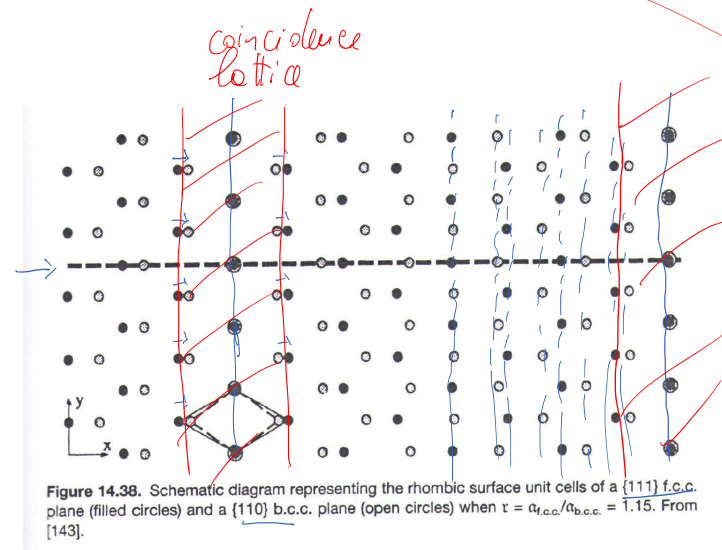 coincidence
lattice
y
x
Figure 14.38. Schematic diagram representing the rhombic surface unit cells of a {111} f.c.c.
plane (filled circles) and a {110} b.c.c. plane (open circles) when r = αf.c.c./αb.c.c. = 1.15. From
[143].